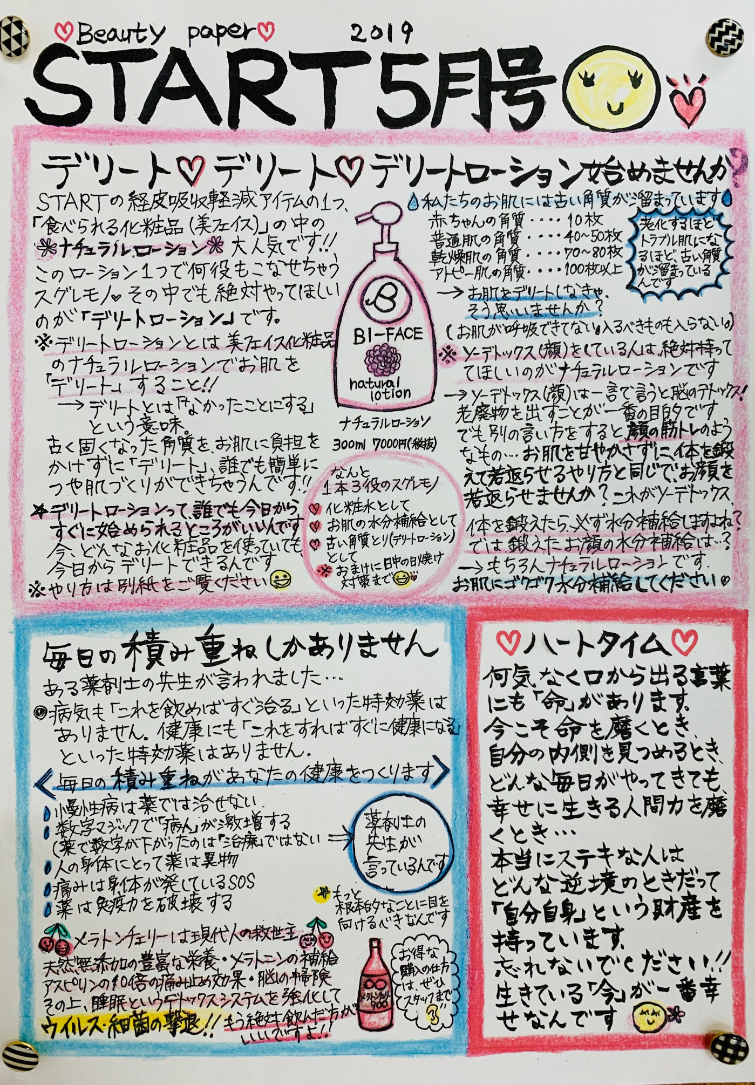 ♡Beauty paper♡ 2019
START5月号
デリート♡デリート♡デリートローション始めませんか?
STARTの経皮吸収軽減アイテムの1つ、
「食べられる化粧品(美フェイス)」の中の
❀ナチュラルローション❀ 大人気です!!
このローション1つで何役もこなせちゃう
スグレモノ♥その中でも絶対やってほしい
のが「デリートローション」です。
※デリートローションとは美フェイス化粧品
のナチュラルローションでお肌を
「デリート」すること!!
→デリートとは「なかったことにする」
という意味。
古く固くなった角質を、お肌に負担を
かけずに「デリート」、誰でも簡単に
つや肌づくりができちゃうんです!!
★デリートローションって、誰でも今日から
すぐに始められるところがいいんです
今、どんなお化粧品を使っていても
今日からデリートできるんです
※やり方は別紙をご覧ください
BI-FACE
natural
lotion
ナチュラルローション
300ml 7000円(税抜)
なんと
1本3役のスグレモノ
♥化粧水として
♥お肌の水分補給として
♥古い角質とり(デリートローション)
として
※おまけに日中の日焼け
対策まで
私たちのお肌には古い角質が溜まっています
赤ちゃんの角質‥‥10枚
普通肌の角質‥‥40~50枚
乾燥肌の角質‥‥70~80枚
アトピー肌の角質‥‥100枚以上
老化するほど
トラブル肌にな
るほど、古い角質
が溜まっている
んです
→お肌をデリートしなきゃ、
そう思いませんか?
(お肌が呼吸できてない。入るべきものも入らない。)
※ソーデトックス(顔)をしている人は、絶対持って
てほしいのがナチュラルローションです
→ソーデトックス(顔)は一言で言うと脳のデトックス!
老廃物を出すことが一番の目的です
でも別の言い方をすると顔の筋トレのよう
なもの…お肌を甘やかさずに、体を鍛
えて若返らせるやり方と同じで、お顔を
若返らせませんか?これがソーデトックス
体を鍛えたら、必ず水分補給しますよね?
では鍛えたお顔の水分補給は?
→もちろんナチュラルローションです
お肌にゴクゴク水分補給してください♥
毎日の積み重ねしかありません
ある薬剤士の先生が言われました…
◎病気も「これを飲めばすぐ治る」といった特効薬は
ありません。健康にも「これをすればすぐに健康になる」
といった特効薬はありません。
<毎日の積み重ねがあなたの健康をつくります>
慢性病は薬では治せない
数字マジックで「病人」が激増する
(薬で数字が下がったのは"治療"ではない
人の身体にとって薬は異物
痛みは身体が発しているSOS
薬は免疫力を破壊する
⇒薬剤士の
先生が
言っているんです
もっと
根本的なことに目を
向けるべきなんです
メラトンチェリーは現代人の救世主
天然無添加の豊富な栄養・メラトニンの補給
アスピリンの10倍の痛み止め効果・脳の掃除
その上、睡眠というデトックスシステムを強化して
ウイルス・細菌の撃退!!もう絶対飲んだ方が
いいですよ!!
お得な
購入の仕方
は、ぜひ
スタッフまで
♡ハートタイム♡
何気なく口から出る言葉
にも「命」があります。
今こそ命を磨くとき、
自分の内側を見つめるとき、
どんな毎日がやってきても、
幸せに生きる人間力を磨
くとき…
本当にステキな人は
どんな逆境のときだって
「自分自身」という財産を
持っています。
忘れないでください!!
生きている「今」が一番幸
せなんです